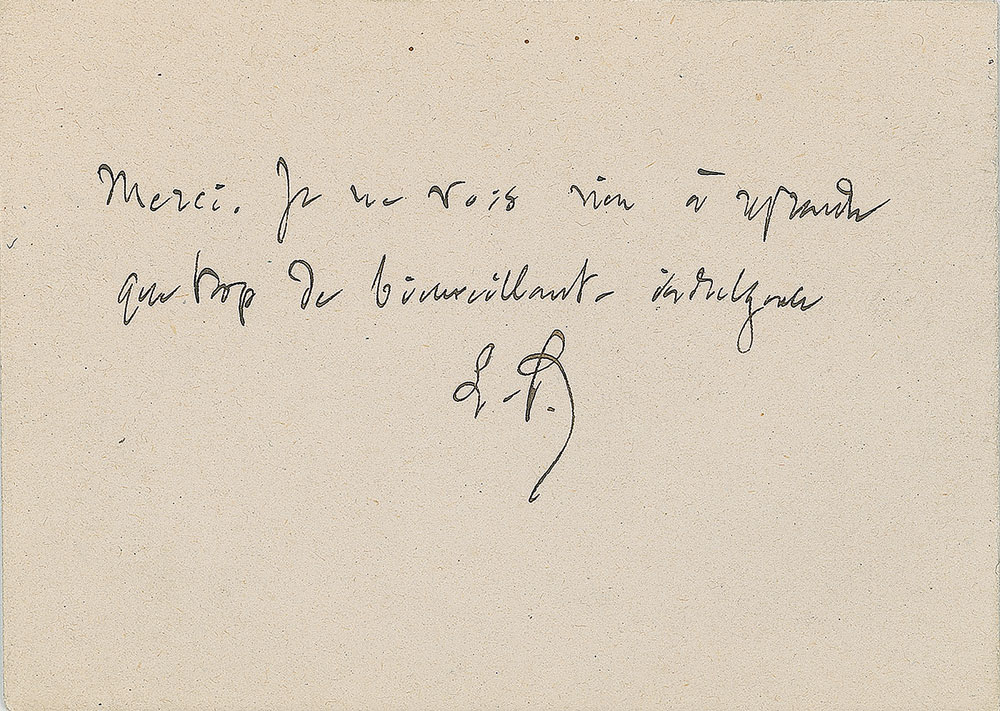 Merci. Je ne vois rien à reprendre
que trop de bienveillante indulgence
L.P.